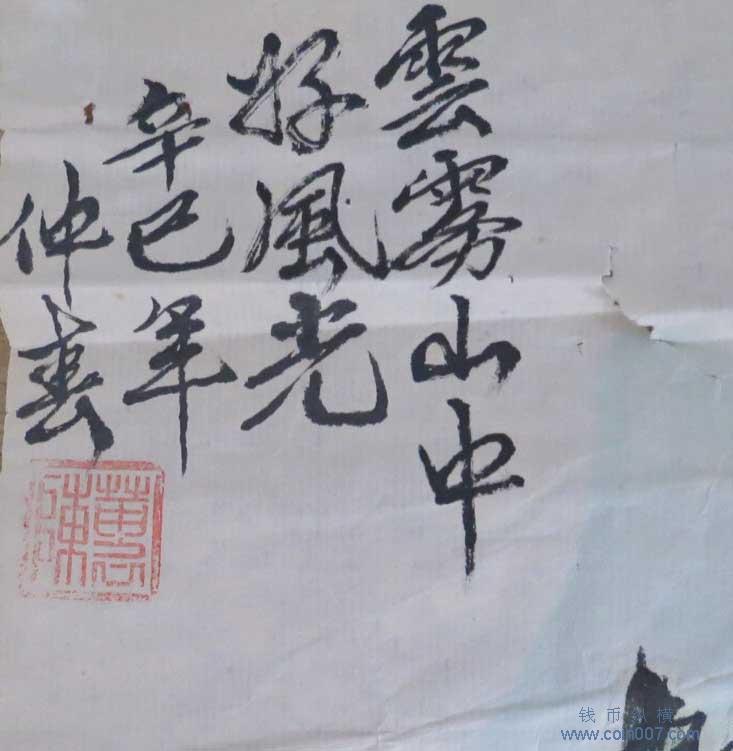 雲霧山中
好風光
辛巳年
仲春
钱币纵横
www.coin007.com